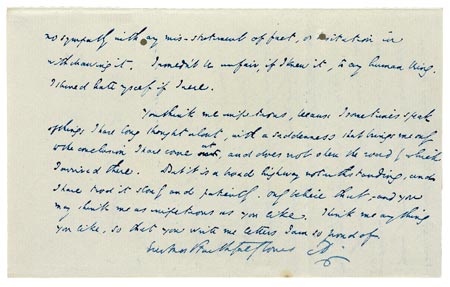 no sympathy with any mis-statement of fact, or hesitation in
withdrawing it. I wouldn't be unfair, if I knew it, to any human being.
I should hate myself if I were.
You think me impetuous, because I sometimes speak
of things I have long thought about, with a suddenness that brings me only
to the conclusion I have come at, and does not shew the road by which
I arrived there. But it is a broad highway notwithstanding, and
I have trod it slowly and patiently. Only believe that, and you
may think me as impetuous as you like. Think me anything
you like, so that you write me letters I am so proud of.
Ever Most Faithfully Yours CD